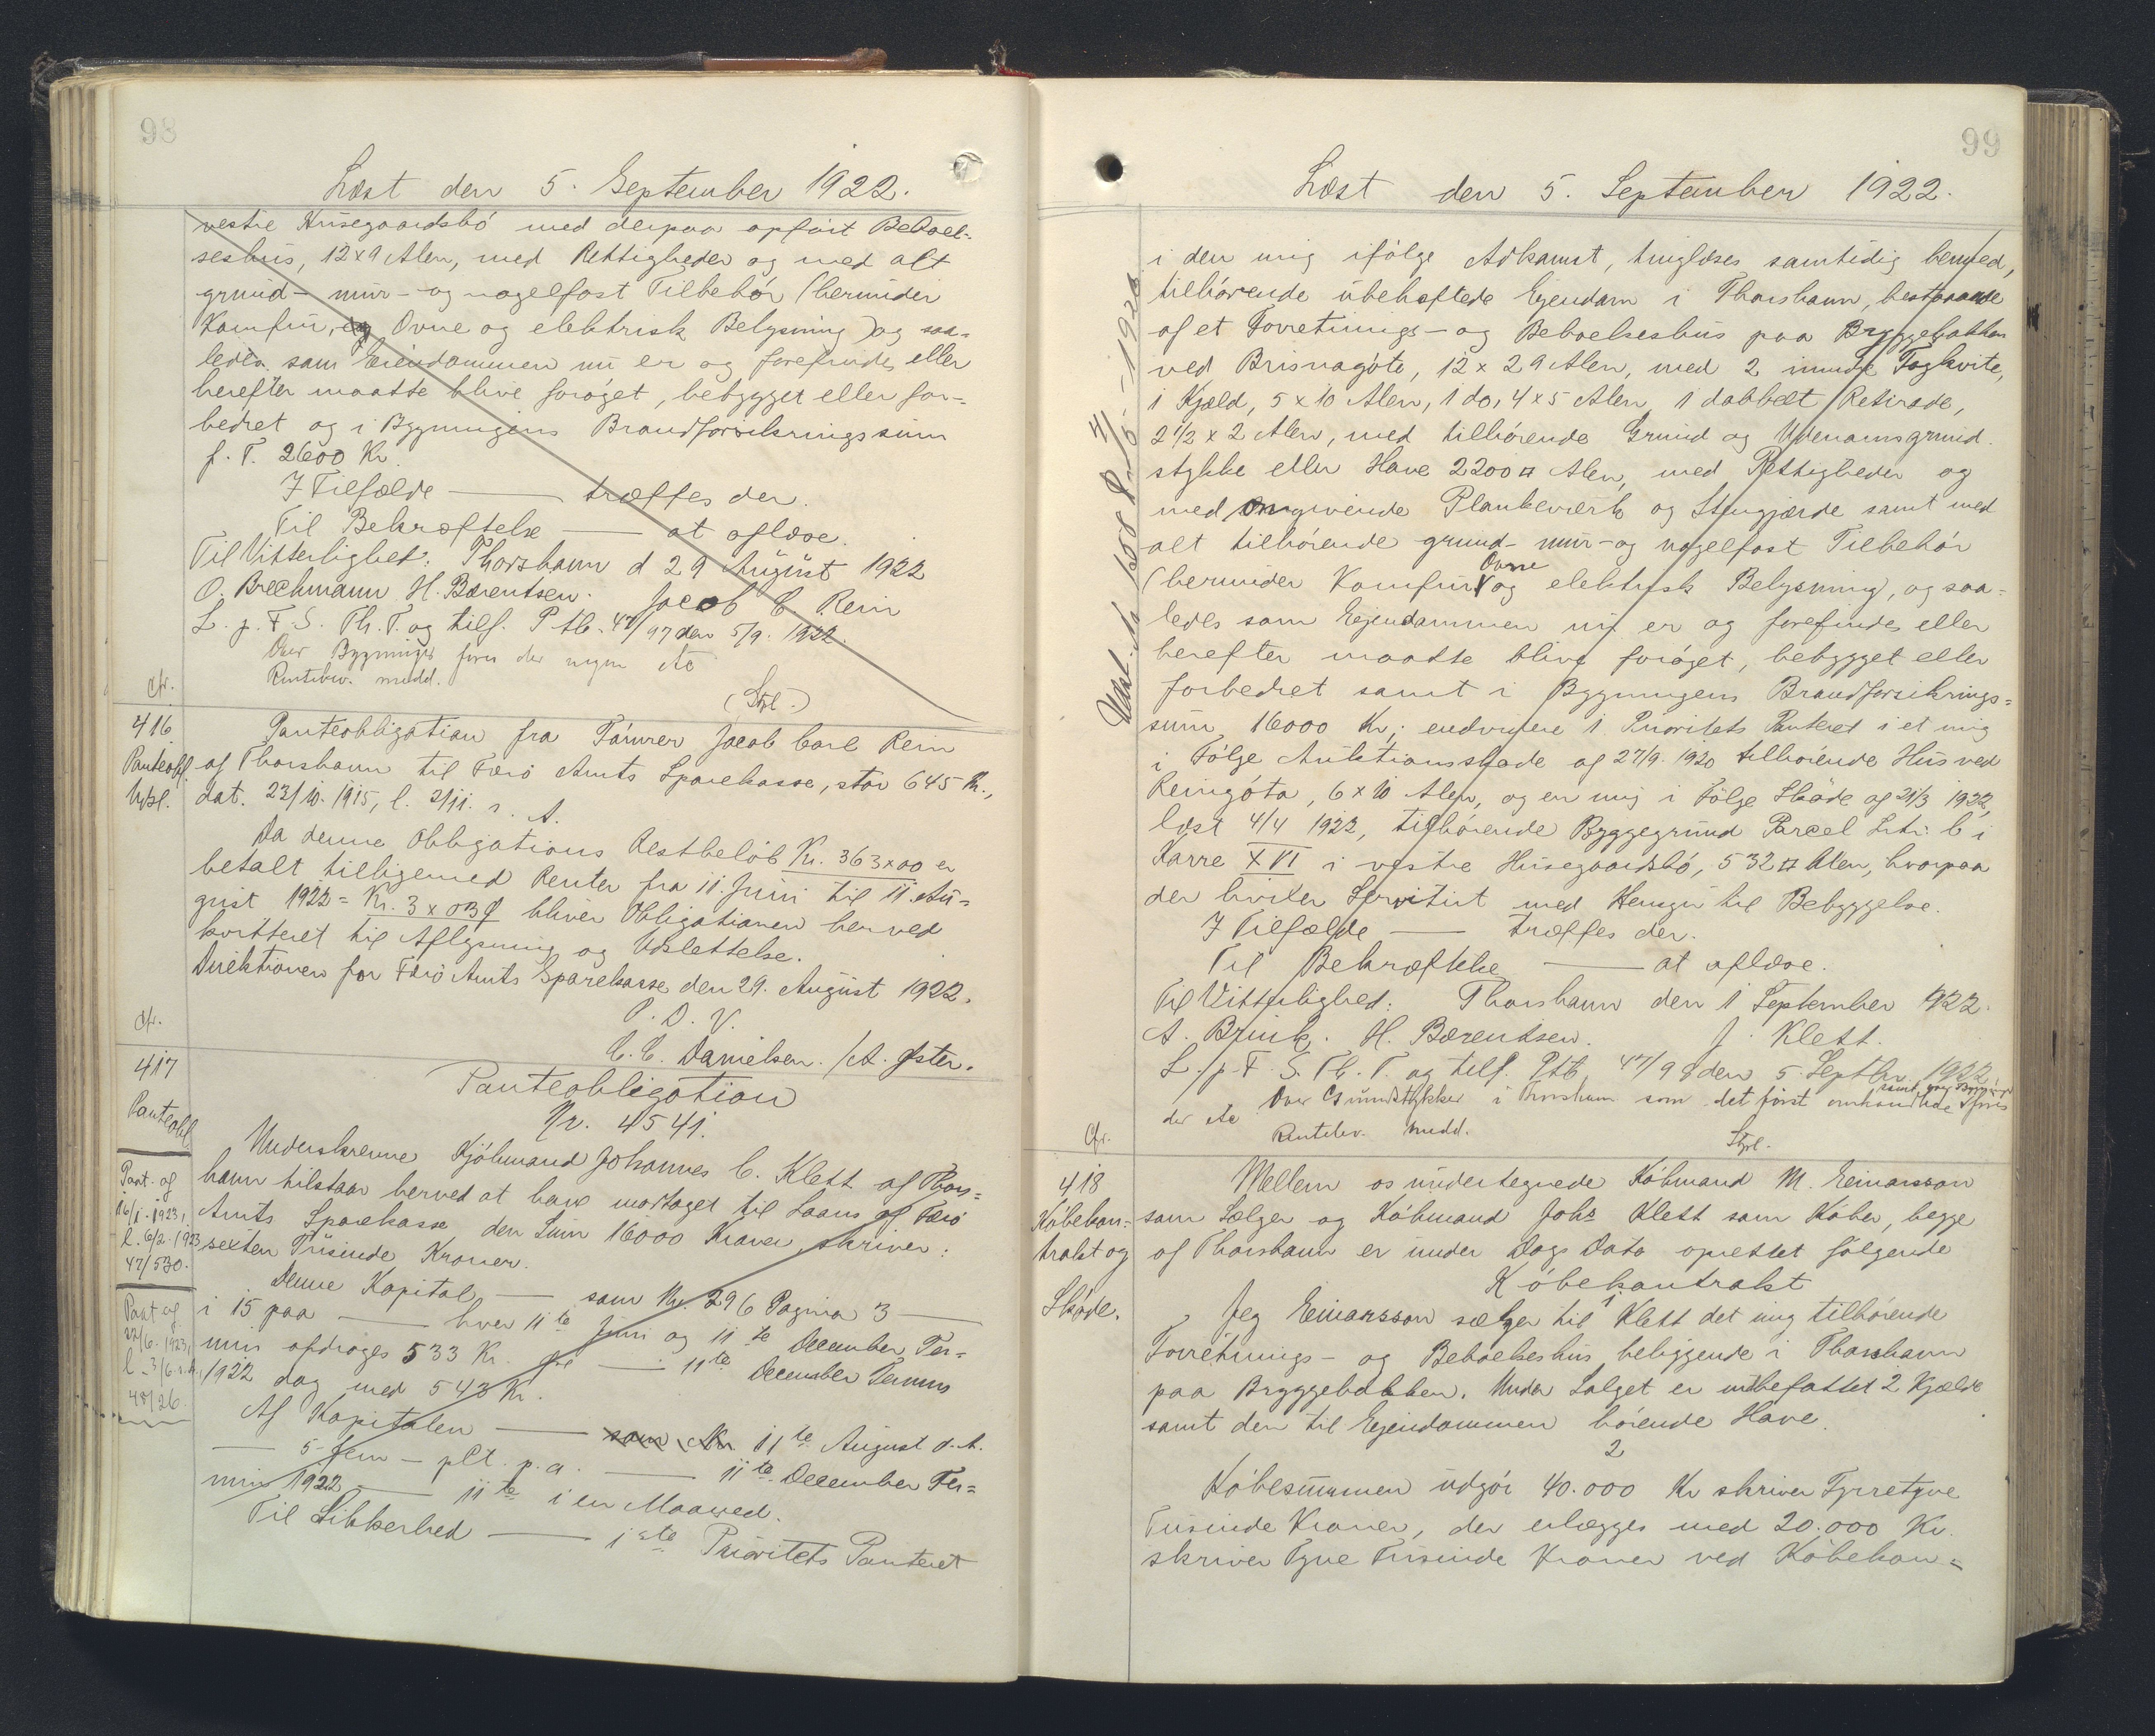 98
Læst den 5. September 1922.
vestre Husegaardsbó med derpaa opført Beboel-
seshus, 12x9 Alen, med Rettigheder og med alt
grund- mur- og nagelfast Tilbehör (herunder
Komfur, og Ovne og elektrisk Belysning) og saa-
ledes som Eiendommen nu er og forefindes eller
herefter maatte blive forøget, bebygget eller for-
bedret og i Bygningens Brandforsikringssum
p. T. 2600 Kr.
I Tilfælde ——— træffes der.
Til Bekræftelse ——— at aflæse.
Til Vitterlighed: Thorshavn d 29 August 1922
O. Brechmann H. Bærentsen. Jacob C Rein
L. p. F. S. Th. T. og tilf. Ptb. 47/97 den 5/9. 1922.
Over Bygninger føres der ingen etc
Rentebev. medd.
(Styl.)
cfr.
416
Panteobl.
Udsl.
Panteobligation fra Tömrer Jacob Carl Rein
af Thorshavn til Færö Amts Sparekasse, stor 645 Kr.,
dat. 23/10. 1915, l. 2/11. s. A.
Da denne Obligations Restbelöb Kr. 363x00 er
betalt tilligemed Renter fra 11. Juni til 11. Au-
gust 1922 = Kr. 3x03 bliver Obligationen herved
kvitteret til Aflysning og Udslettelse.
Direktionen for Færö Amts Sparekasse den 29. August 1922.
P. D. V.
C. C. Danielsen. /A. Øster.
Cfr.
417
Panteobl.
Panteobligation
Nr. 4541.
Paat. af
16/1. 1923,
l. 6/2. 1923
47/530.
Paat. af
22/6. 1923,
48/26.
Underskrevne Kjöbmand Johannes C. Klett af Thors-
havn tilstaar herved at have modtaget til Laans af Færö
Amts Sparekasse den Sum 16000 Kroner skriver:
sexten Tusinde Kroner.
Denne Kapital ——— som Nr. 296 Pagina 3 ———
i 15 paa ——— hver 11te Juni og 11te December Ter-
min afdrages 533 Kr. ——— 11te December Termin
1922 dog med 543 Kr.
Af Kapitalen ——— som Nr 11te August d. A.
——— 5- fem - pCt. p. a. ——— 11te December Ter-
min 1922 ——— 11te i en Maaned.
Til Sikkerhed ——— 1ste Prioritets Panteret
99
Læst den 5. September 1922.
i den mig ifölge Adkomst, tinglæses samtidig hermed,
tilhörende ubehæftede Ejendom i Thorshavn, bestaaende
af et Forretnings- og Beboelseshus paa Bryggebakken
ved Brisnagöta, 12 x 29 Alen, med 2
1 Kjæld, 5 x 10 Alen, 1 do, 4 x 5 Alen 1 dobbelt Retirade,
2 1/2 x 2 Alen, med tilhörende Grund og Udenomsgrund-
stykke eller Have 2200 □ Alen, med Rettigheder og
med omgivende Plankeværk og Stengjærde samt med
alt tilhörende grund- mur- og nagelfast Tilbehör
(herunder Komfur, Ovne og elektrisk Belysning), og saa-
ledes som Ejendommen nu er og forefindes eller
herefter maatte blive forøget, bebygget eller
forbedret samt i Bygningens Brandforsikrings-
sum 16000 Kr; endvidere 1 Prioritets Panteret i et mig
i Følge Auktionsskøde af 27/9. 1920 tilhörende Hus ved
Reingöta, 6 x 10 Alen, og en mig i Følge Sköde af 21/3 1922,
læst 4/4 1922, tilhörende Byggegrund Parcel Litr. C i
Karre XVI i vestre Husegaardsbó, 532 □ Alen, hvorpaa
der hviler Servitut med Hensyn til Bebyggelse.
I Tilfælde ——— træffes der.
Til Bekræftelse ——— at aflæse.
Til Vitterlighed: Thorshavn den 1 September 1922.
A. Brink. H. Bærentsen. J. Klett.
L. p. F. S. Th. T. og tilf. Ptb. 47/98 den 5. Septbr. 1922
Over Grundstykker i Thorshavn som det först omhandlede samt over Bygninger føres
der etc
Rentebev. medd.
Styl.
Cfr.
418
Köbekon-
trakt og
Sköde.
Mellem os undertegnede Köbmand M. Einarsson
som Sælger og Köbmand Johs Klett som Köber, begge
af Thorshavn er under Dags Dato oprettet fölgende
Köbekontrakt
1
Jeg Einarsson sælger til Klett det mig tilhörende
Forretnings- og Beboelseshus beliggende i Thorshavn
paa Bryggebakken. Under Salget er indbefattet 2 Kjælde
samt den til Ejendommen hörende Have.
2
Köbesummen udgör 40.000 Kr skriver Fyrretyve
Tusinde Kroner, der erlægges med 20.000 Kr.
skriver Tyve Tusinde Kroner ved Köbekon-